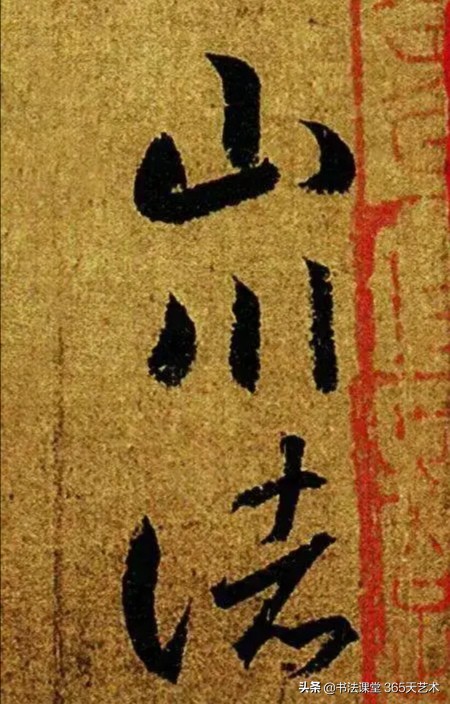 山川諸
头条 @书法课堂 365天艺术